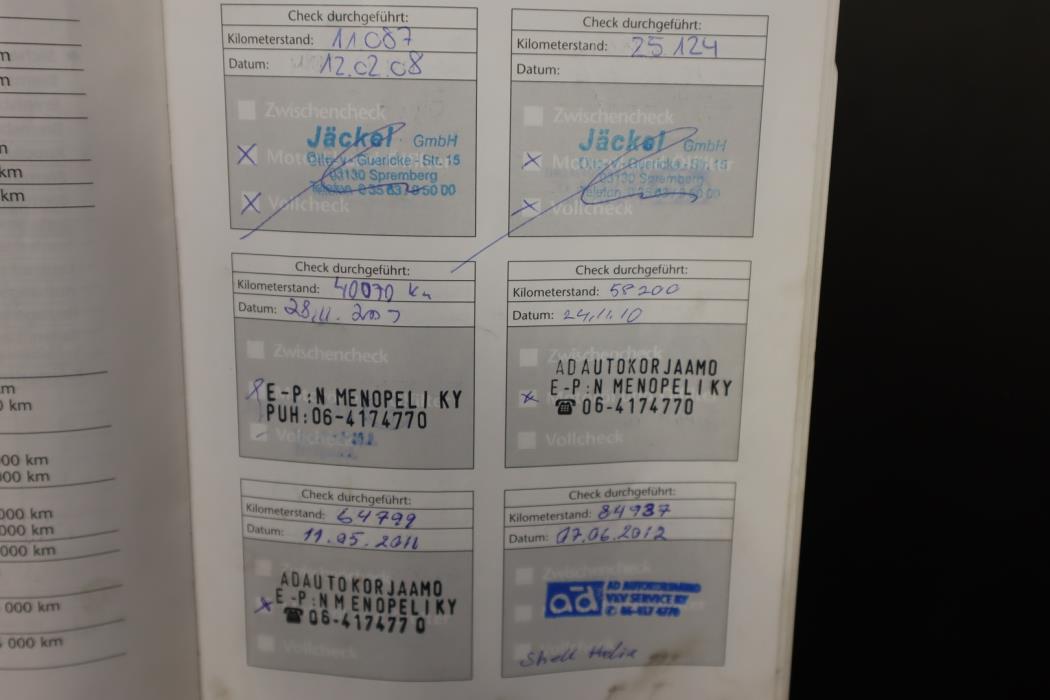 m
m
n
km
km
km
0 km
000 km
000 km
000 km
000 km
000 km
000 km
000 km
Check durchgeführt:
Kilometerstand: 11087
Datum: 12.02.08
Zwischencheck
Vollcheck
Jäckel GmbH
Otto-v.-Guericke-Str. 15
03130 Spremberg
Telefon
50 00
Check durchgeführt:
Kilometerstand: 25 124
Datum:
Zwischencheck
Vollcheck
Jäckel GmbH
Otto-v.-Guericke-Str. 15
03130 Spremberg
Telefon
50 00
Check durchgeführt:
Kilometerstand: 40070 km
Datum: 28.11.
Zwischencheck
E-P:N MENOPELI KY
PUH:06-4174770
Vollcheck
Check durchgeführt:
Kilometerstand: 58200
Datum: 24.11.10
Zwischencheck
ADAUTOKORJAAMO
E-P:N MENOPELI KY
☎ 06-4174770
Vollcheck
Check durchgeführt:
Kilometerstand: 64799
Datum: 11.05.2011
ADAUTOKORJAAMO
E-P:N MENOPELI KY
☎ 06-4174770
Vollcheck
Check durchgeführt:
Kilometerstand: 84937
Datum: 07.06.2012
Zwischencheck
ad AD AUTOKORJAAMO
V&V SERVICE KY
06-417 4770
Shell Helix